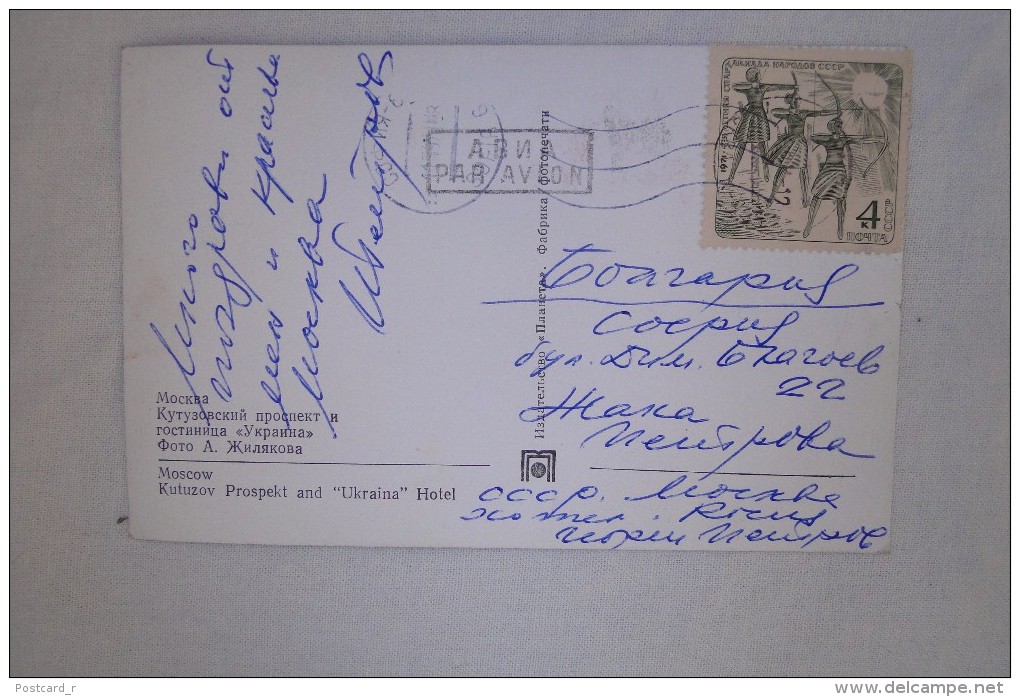 Много
поздрави от
мен и красива
Москва
Петров
Москва
Кутузовский проспект и
гостиница «Украина»
Фото А. Жилякова
Moscow
Kutuzov Prospekt and "Ukraina" Hotel
Издательство «Планета». Фабрика фотопечати
АВИА
PAR AVION
1971
НАРОДОВ СССР
4 к
ПОЧТА СССР
България
София
бул. Дим. Благоев
22
Жана
Петрова
СССР. Москва
хотел. Росия
Петров
Postcard_r
www.delcampe.net